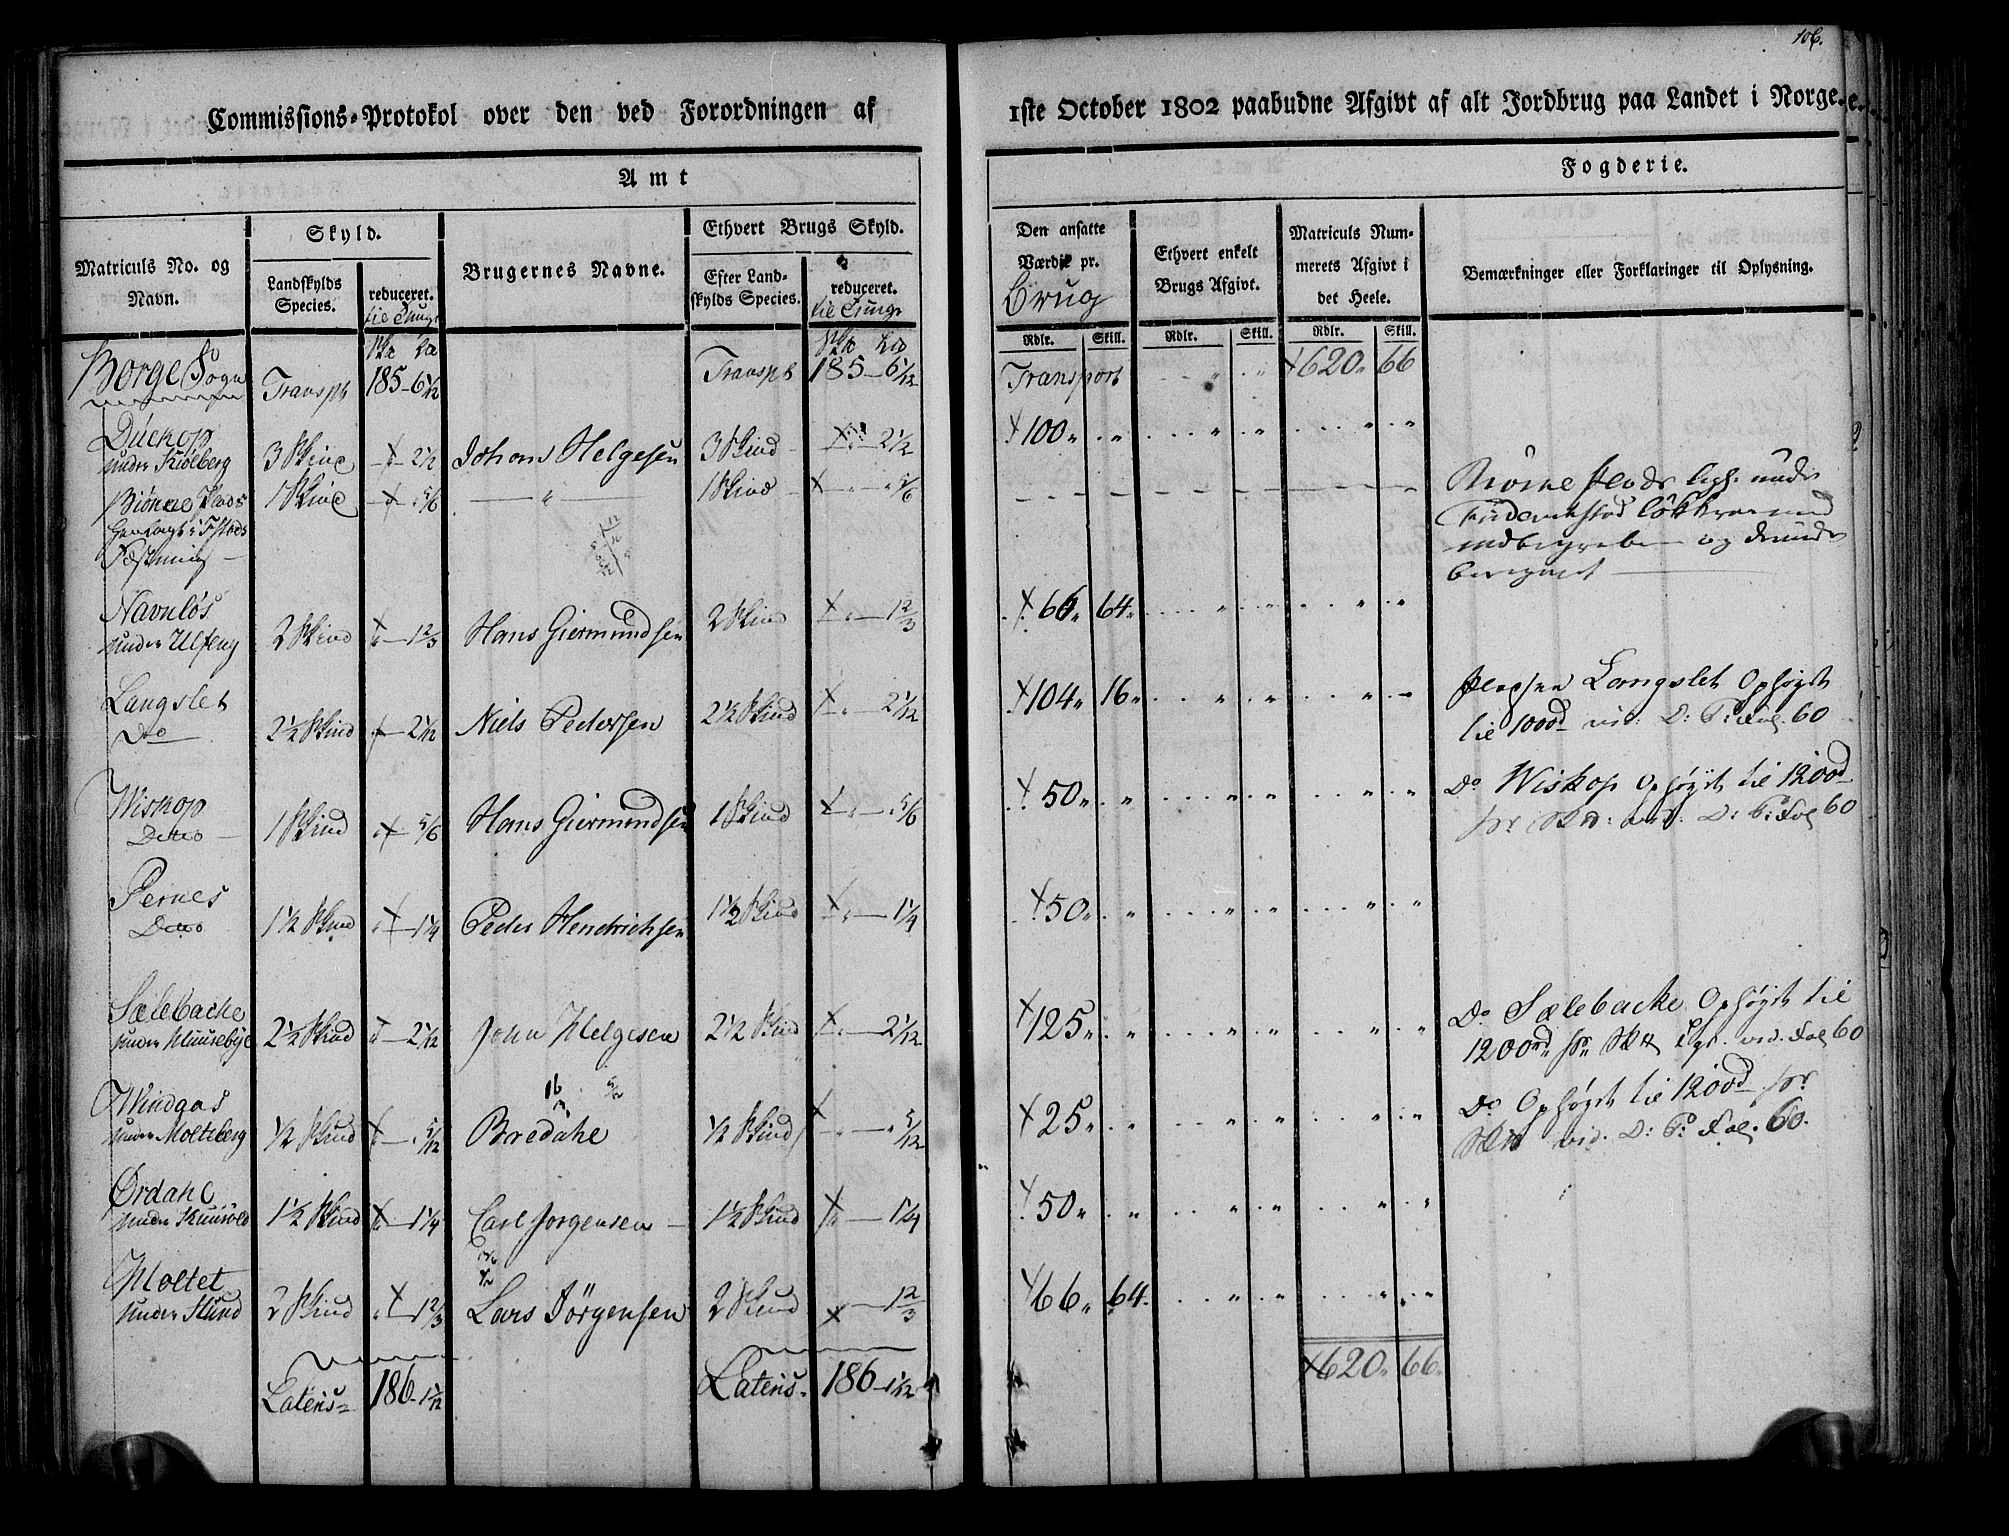 106.
Commissions-Protokol over den ved Forordningen af 1ste October 1802 paabudne Afgivt af alt Jordbrug paa Landet i Norge.
Amt
Fogderie.
Matriculs No. og Navn.
Skyld.
Landskylds Species.
reduceret. til Tunge
Brugernes Navne.
Ethvert Brugs Skyld.
Efter Landskylds Species.
reduceret. til Tunge
Den ansatte Værdie pr. Brug
Rdlr. Skill.
Ethvert enkelt Brugs Afgivt.
Rdlr. Skill.
Matriculs Nummerets Afgivt i det Heele.
Rdlr. Skill.
Bemærkninger eller Forklaringer til Oplysning.
Borge Sogn Transpt 185-6 1/12 Transpt 185-6 1/12 Transport 620 66
Duekop
under Kiøleberg 3 Skind 2 1/2 Johans Helgesen 3 Skind 2 1/2 100
Biørnestads 1 Skind 5/6 1 Skind 5/6
Fæstning
Biørnestads under
indbegreben og derunder
beregnet
Navnløs
under Ulfeng 2 Skind 1 2/3 Hans Giermundsen 2 Skind 1 2/3 66 64
Langslet
Do 2 1/2 Skind 2 1/12 Niels Pedersen 2 1/2 Skind 2 1/12 104 16
Langslet Ophøyet
til 1000 rd vid. D: P: Fol. 60
Wiskop
Ditto 1 Skind 5/6 Hans Giermundsen 1 Skind 5/6 50
Do Wiskop Ophøyet til 1200 rd
pr vid: D: P: Fol 60
Pernes
Ditto 1 1/2 Skind 1 1/4 Peder Hendrichsen 1 1/2 Skind 1 1/4 50
Sælebacke
under Huusebye 2 1/2 Skind 2 1/12 John Helgesen 2 1/2 Skind 2 1/12 125
Do Sælebacke Ophøyet til
1200 rd pr vid. Fol 60
Windgas
under Molteberg 1/2 Skind 5/12 Bredahl 1/2 Skind 5/12 25
Do Ophøyet til 1200 rd pr
vid. D: P: Fol. 60.
Ørdahl
under Kuusold 1 1/2 Skind 1 1/4 Carl Jørgensen 1 1/2 Skind 1 1/4 50
Moltet
under Lund 2 Skind 1 2/3 Lars Jørgensen 2 Skind 1 2/3 66 64
Lateris 186-1 1/12 Lateris 186-1 1/12 620 66